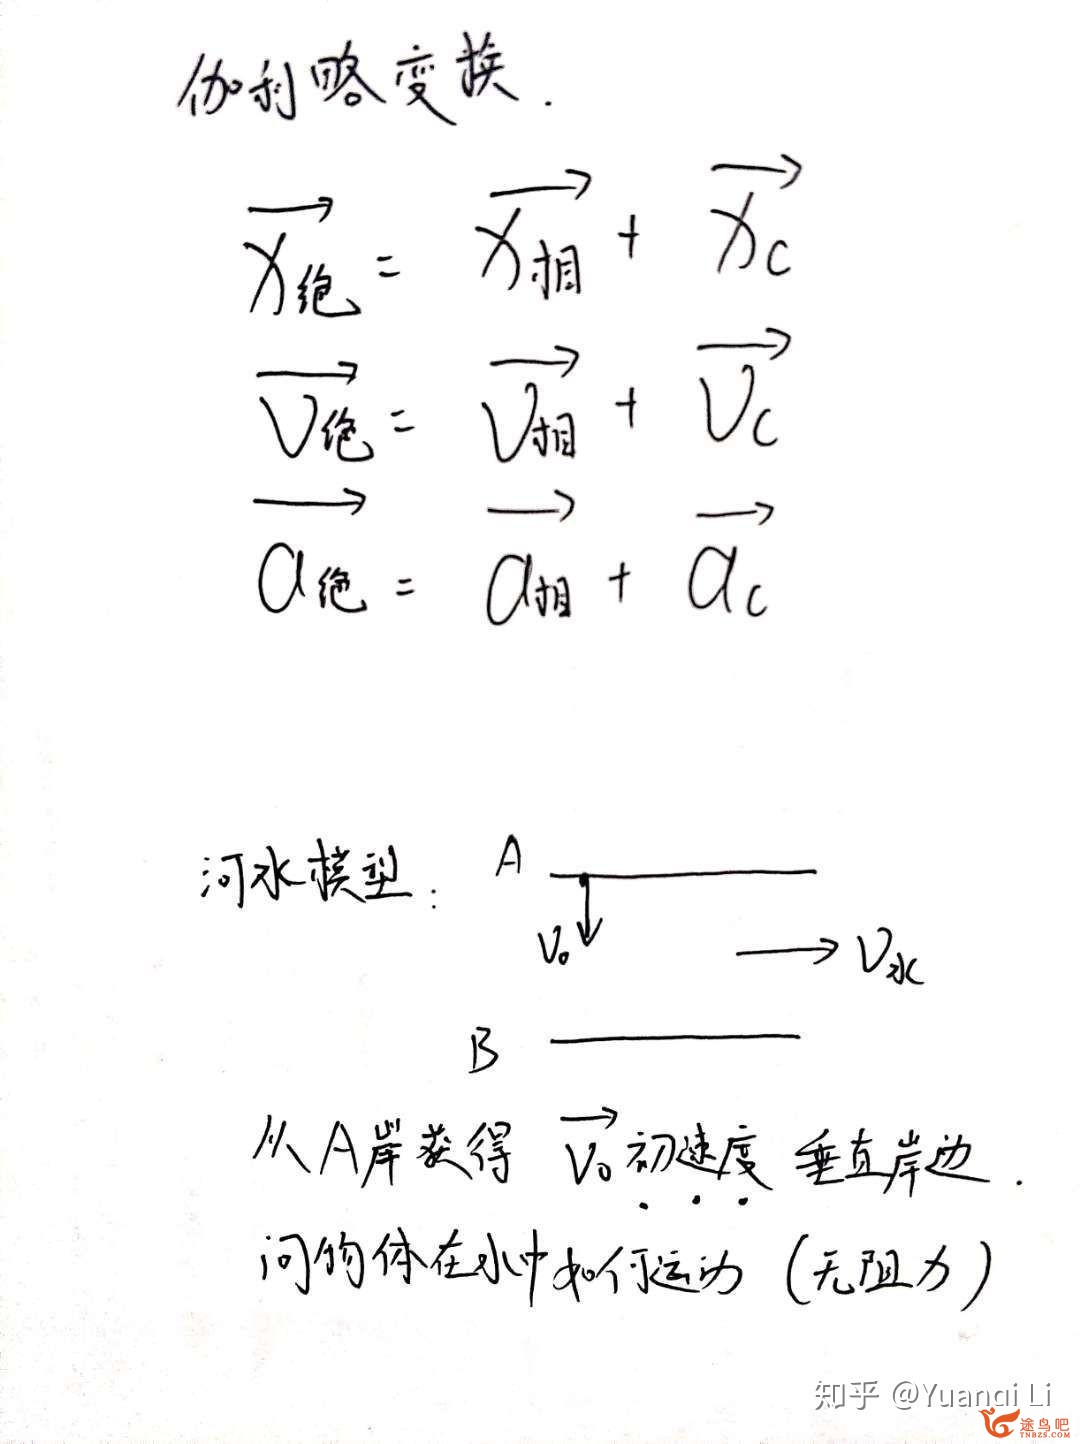 伽利略变换.
x绝 = x相 + xc
V绝 = V相 + Vc
a绝 = a相 + ac
河水模型: A
V0
V水
B
从A岸获得 V0 初速度 垂直岸边.
问物体在水中如何运动 (无阻力)
知乎 @Yuanqi Li
途鸟吧
TNBZS.COM